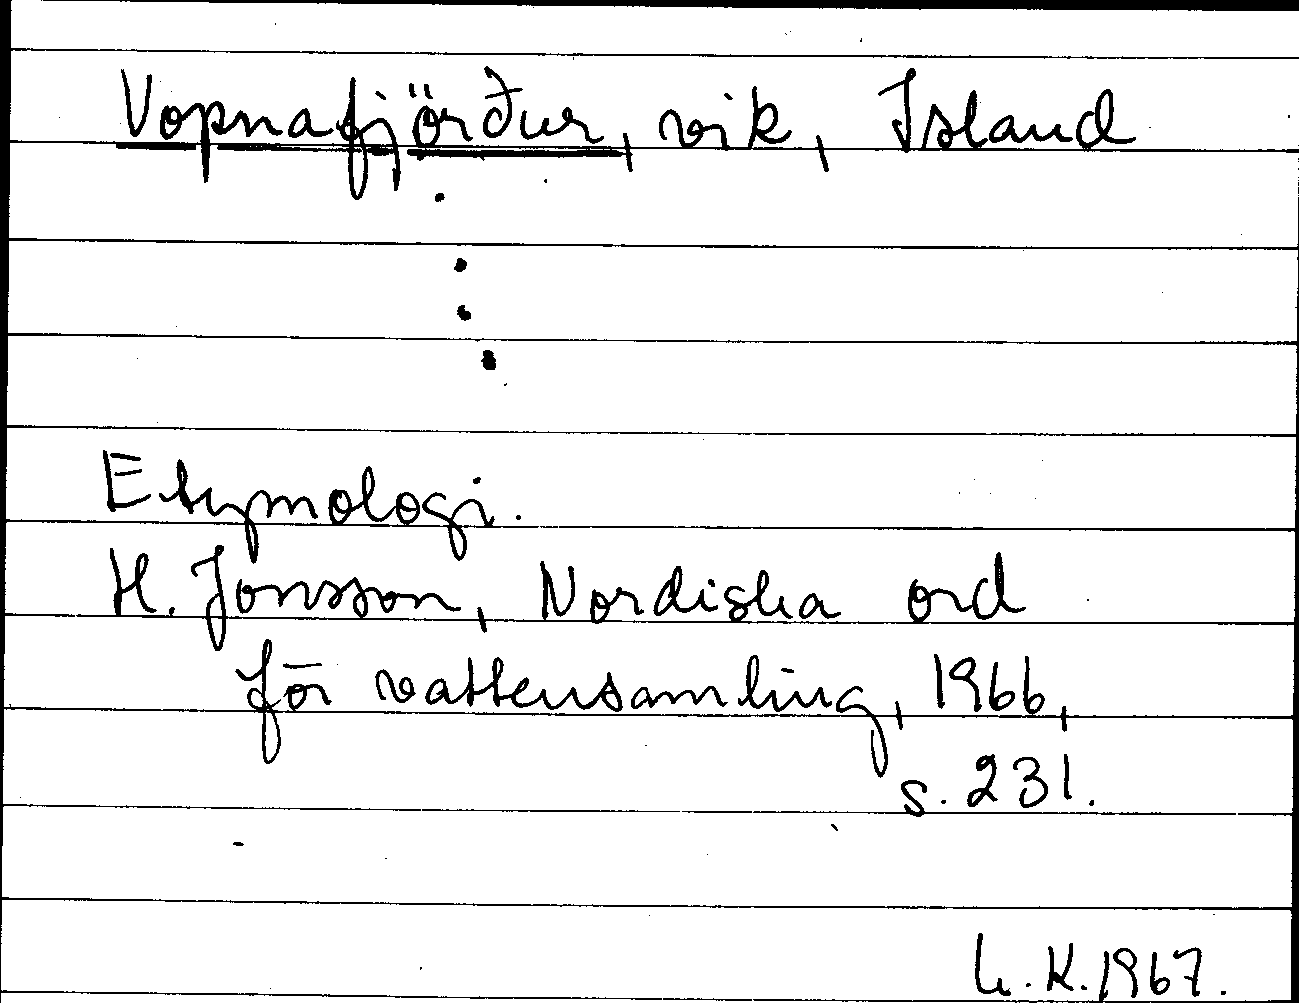 Vopnafjörður, vik, Island
Etymologi.
H. Jonsson, Nordiska ord
för vattensamling, 1966,
s. 231.
K. 1967.